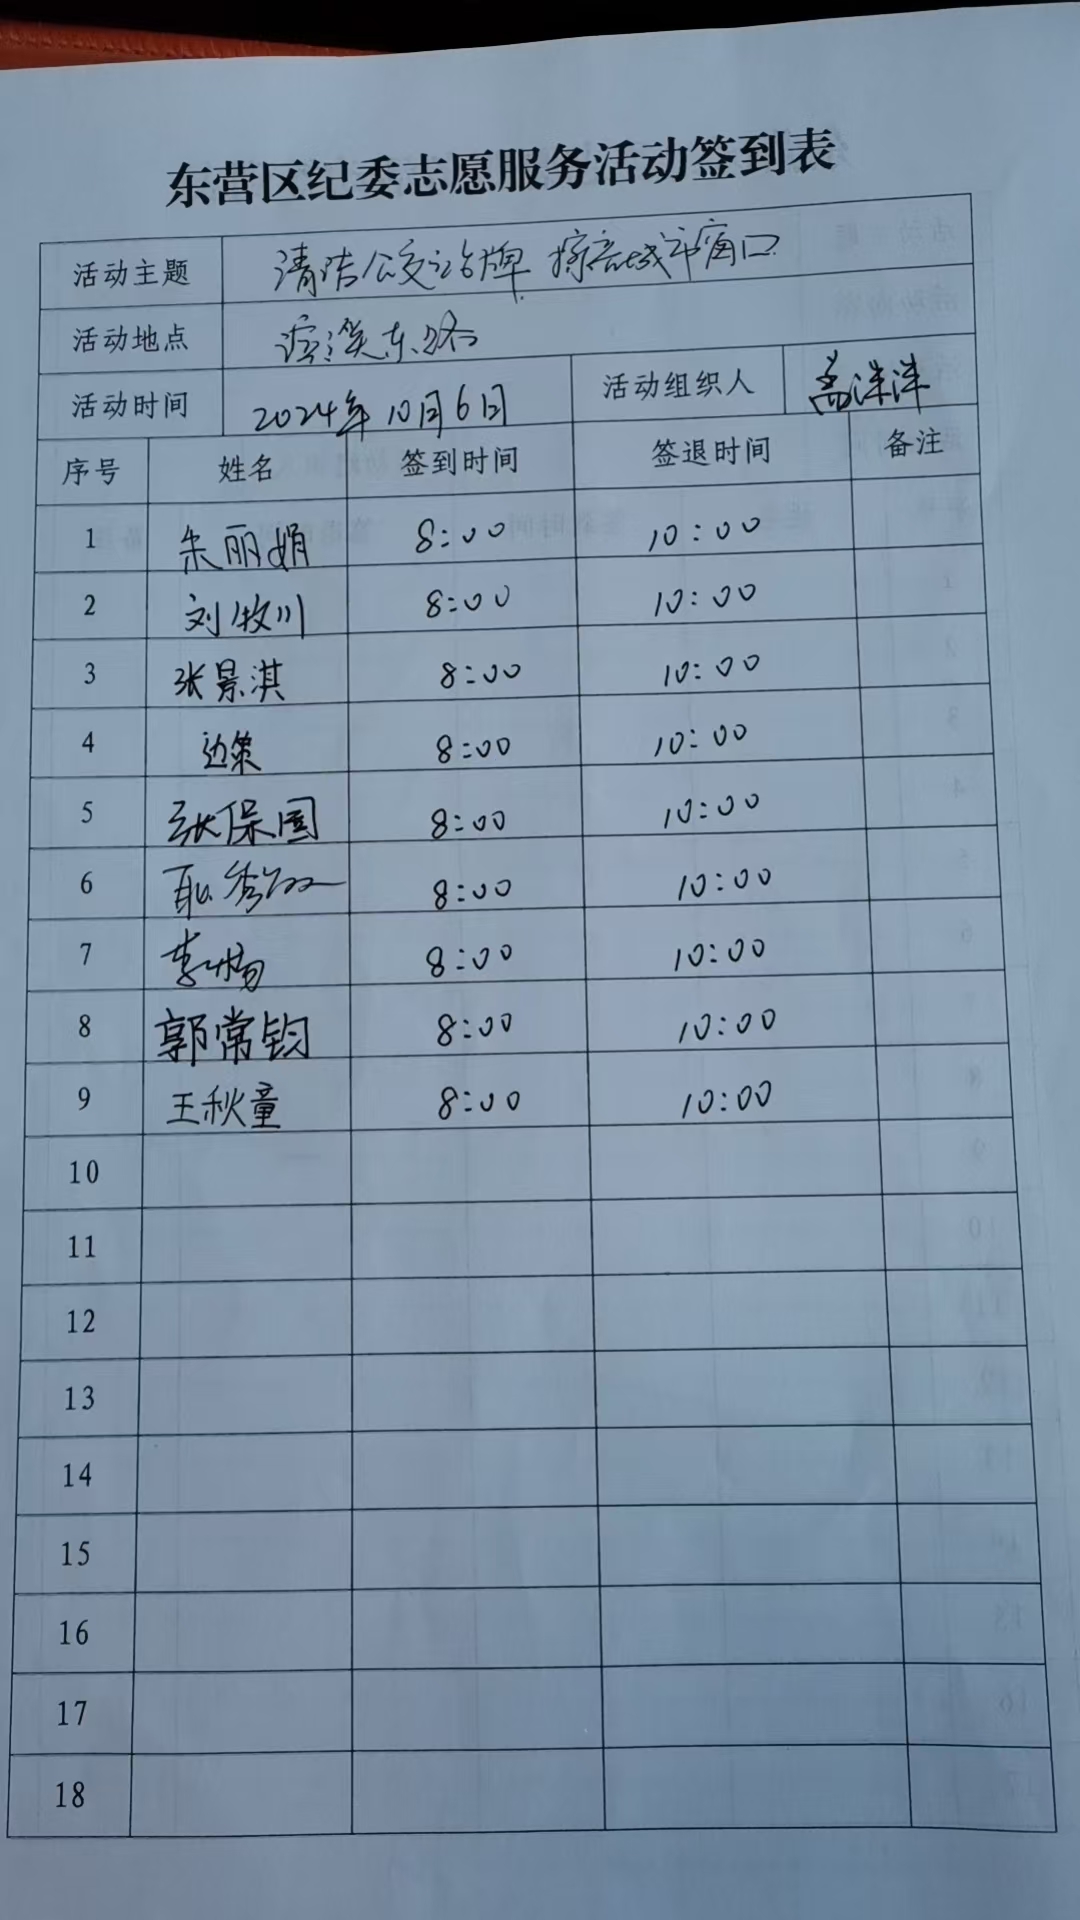 东营区纪委志愿服务活动签到表
活动主题 清洁公交站牌 擦亮城市窗口
活动地点 东路
活动时间 2024年10月6日 活动组织人 孟洋洋
序号 姓名 签到时间 签退时间 备注
1 朱丽娟 8:00 10:00
2 刘牧川 8:00 10:00
3 张景淇 8:00 10:00
4 边策 8:00 10:00
5 张保国 8:00 10:00
6 耿秀 8:00 10:00
7 李杨 8:00 10:00
8 郭常钧 8:00 10:00
9 王秋童 8:00 10:00
10
11
12
13
14
15
16
17
18